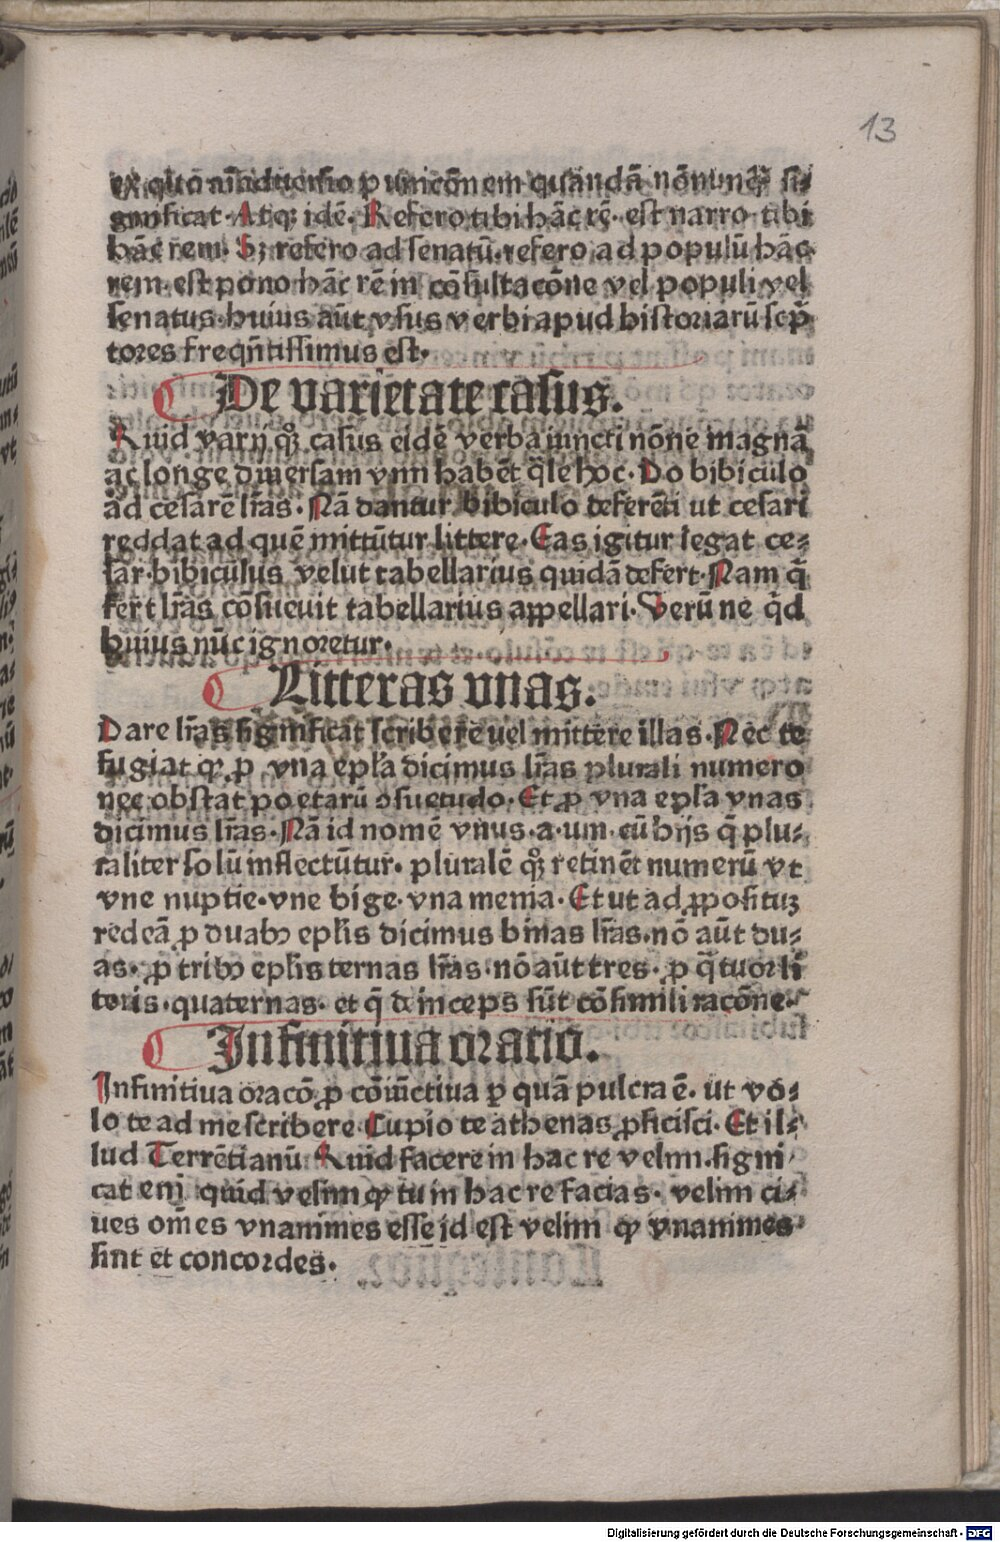 13
ex quo aīaduersio punicōnem quandā nōnunq̄ si⸗
gnificat. Atqꝫ idē. Refero tibi hāc rē. est narro tibi
hāc rem. Sꝫ refero ad senatū. refero ad populū hāc
rem. est pono hāc rē in cōsultacōne vel populi vel
senatus. huius aūt vsus verbi apud historiarū scp̄
tores freqn̄tissimus est.
De varietate casus.
Quid varij qꝫ casus eidē verba iuncti nōne magnā
ac longe diuersam vim habēt q̄le hoc. Do bibiculo
ad cesarē lr̄as. Nā dantur bibiculo deferēti ut cesari
reddat ad quē mittūtur littere. Eas igitur legat ce⸗
sar. bibiculus velut tabellarius quidā defert. Nam q̄
fert lr̄as cōsueuit tabellarius appellari. Verū ne qd̄
huius nūc ignoretur.
Litteras vnas.
Dare lr̄as significat scribere uel mittere illas. Nec te
fugiat ꝙ ꝓ vna epl̄a dicimus lr̄as plurali numero
nec obstat poetarū ꝯsuetudo. Et ꝓ vna epl̄a vnas
dicimus lr̄as. Nā id nomē vnus. a. um. cū hijs q̄ plu⸗
raliter solū inflectūtur. pluralē qꝫ retinēt numerū vt
vne nuptie. vne bige. vna menia. Et ut ad ꝓposituꝫ
redeā ꝓ duabꝰ epl̄is dicimus binas lr̄as. nō aūt du⸗
as. ꝓ tribꝰ epl̄is ternas lr̄as. nō aūt tres. ꝓ q̄tuor li
teris. quaternas. et q̄ deinceps sūt cōsimili racōne.
Infinitiua oratio.
Infinitiua oracō ꝓ cōiūctiua ꝑ quā pulcra ē. ut vo⸗
lo te ad me scribere. Cupio te athenas ꝓficisci. Et il⸗
lud Terrētianū Quid facere in hac re velim. signi
cat eni quid velim ꝙ tu in hac re facias. velim ci⸗
ues om̄es vnanimes esse id est velim ꝙ vnanimes
sint et concordes.
Digitalisierung gefördert durch die Deutsche Forschungsgemeinschaft - DFG